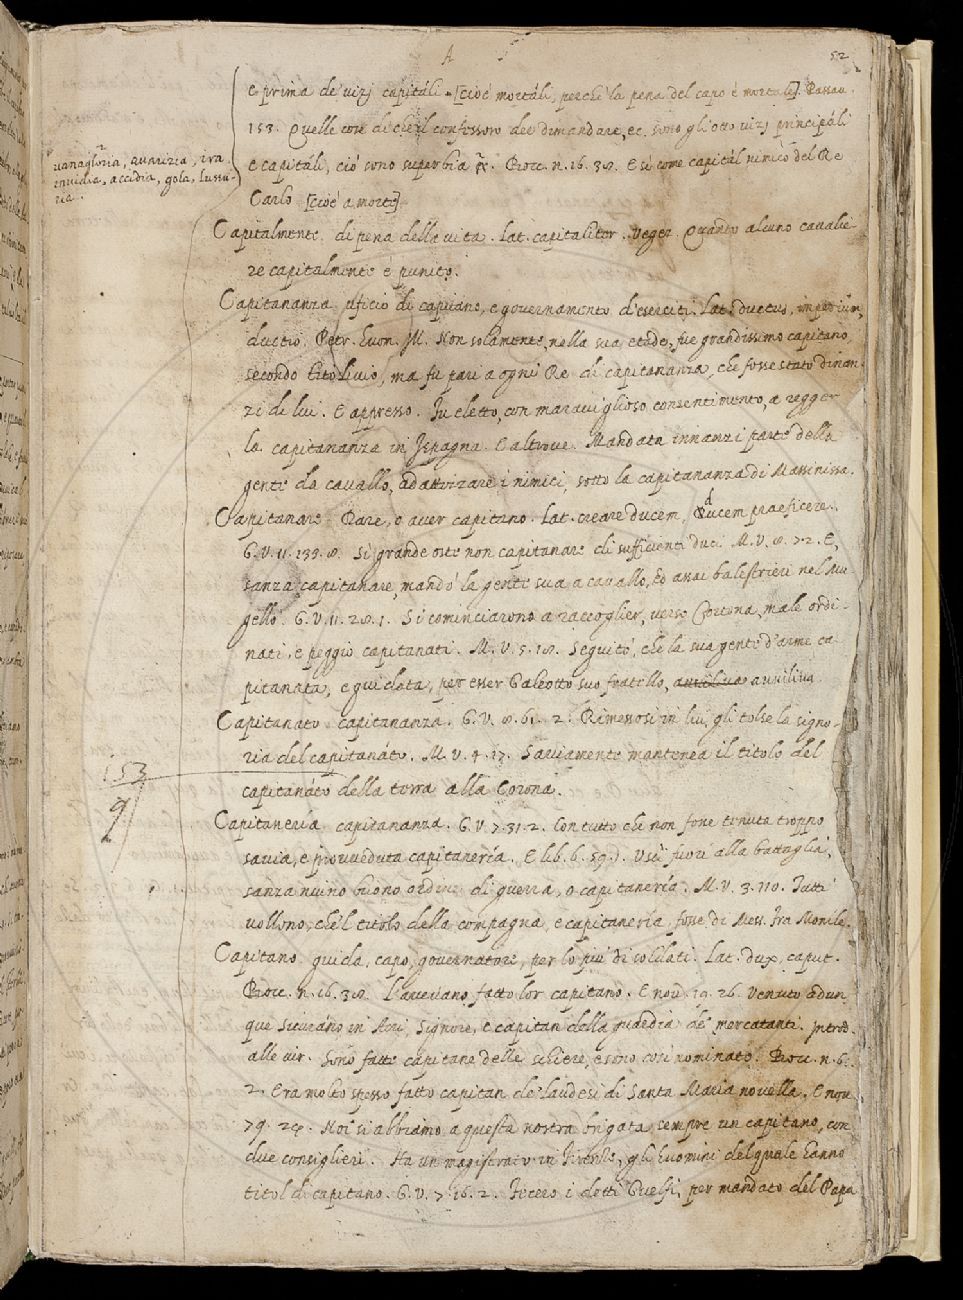 A
52
e prima de' vizj capitáli. [cioé mortáli, perché la pena del capo é mortale] Passav.
153. Quelle cose di che il confessoro dee dimandare, ec. sono gli otto vizj principáli
vanagloria, avarizia, ira,
invidia, accidia, gola, lussu-
ria.
e capitáli, ció sono superbia Bocc. n. 16. 38. E sí come capitál nimico del Re
Carlo [cioé a morte]
Capitalmente. di pena della vita. Lat. capitaliter. Vegez. Quando alcuno cavalie-
re capitalmente é punito.
Capitananza. uficio di capitano, e governamento d'eserciti. Lat. ductus, imperium,
ductio. Petr. huom. Ill. Non solamente, nella sua etade, fue grandissimo capitano,
secondo Tito Livio, ma fu pari a ogni Re di capitananza, che fosse stato dinan-
zi di lui. E appresso. Fu eletto, con maraviglioso consentimento, a regger
la capitananza in Ispagna. E altrove. Mandata innanzi parte della
gente da cavallo, ad attizzare i nimici, sotto la capitananza di Massinissa.
Capitanare. Dare, o aver capitano. Lat. creare ducem, ducem praeficere.
G. V. 11. 139. 8. Sí grande oste non capitanare di sufficienti duci M. V. 8. 72. E,
sanza capitanare, mandó la gente sua a cavallo, ed assai balestrieri nel Mu-
gello. G. V. 11. 28. 1. Si cominciarono a raccoglier, verso Cortona, male ordi-
nati, e peggio capitanati. M. V. 5. 18. Seguitó, che la sua gente d'arme ca-
pitanata, e guidata, per esser Galeotto suo fratello, avviliva
Capitanato. capitananza. G. V. 8. 61. 2. Rimessosi in lui, gli tolse la signo-
ria del capitanáto. M. V. 4. 17. Saviamente mantenea il titolo del
153
9
capitanáto della terra alla Corona.
Capitanería. capitananza. G. V. 7. 31. 2. Con tutto che non fosse tenuta troppo
savia, e provveduta capitanería. E lib. 6. 59. Uscí fuori alla battaglia,
sanza niuno buono ordine di guerra, o capitanería. M. V. 3. 110. Tutti
vollono, che'l titolo della compagna, e capitanería, fosse di Mess. Fra Moriale.
Capitano. guida, capo, governatore, per lo piú di soldati. Lat. dux, caput.
Bocc. n. 16. 38. L'aveviano fatto lor capitano. E nov. 19. 26. Venuto adun-
que Sicuráno in Acri, signore, e capitan della guardia de' mercatanti. Introd.
alle vir. Sono fatte capitane delle schiere, e sono cosí nominate. Bocc. n. 61.
2. Era molto spesso fatto capitan de' laudesi di Santa Maria novella. E nov.
79. 24. Noi si abbiamo a questa nostra brigata sempre un capitano, con
due consiglieri. Ha un magistrato in Firenze, gli huomini del quale hanno
titol di capitano. G. V. 7. 16. 2. Fecero i detti Guelfi, per mandato del Papa